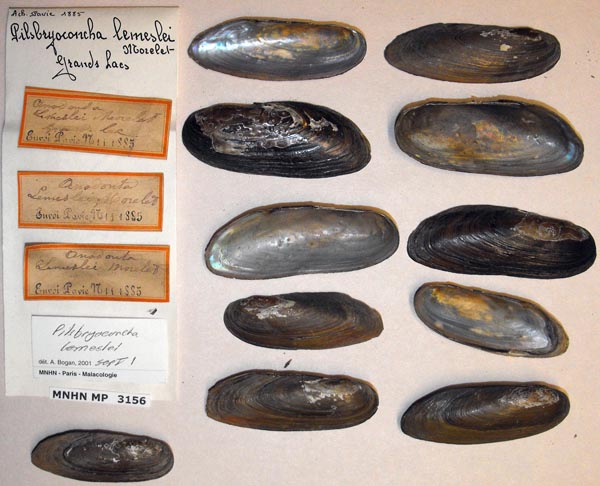 Ach. Pavie 1885
Pilsbryoconcha lemeslei
Morelet
Grands Lacs
Anodonta
Lemeslei Morelet
Envoi Pavie N 11 1885
Anodonta
Lemeslei Morelet
Envoi Pavie N 11 1885
Anodonta
Lemeslei Morelet
Envoi Pavie N 11 1885
Pilsbryoconcha
lemeslei
dét. A. Bogan, 2001 sept 1
MNHN - Paris - Malacologie
MNHN MP 3156